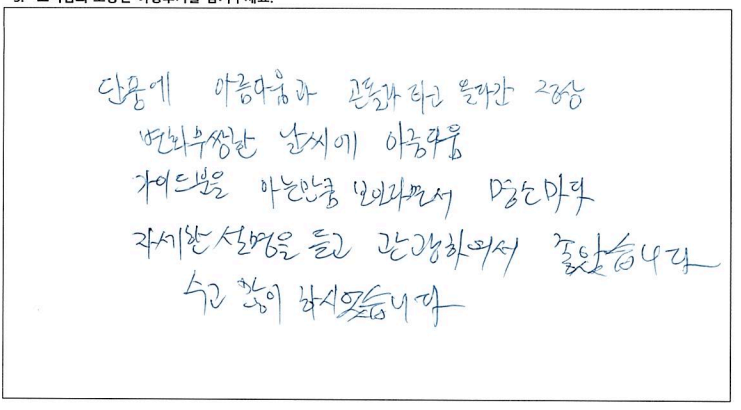 단풍에 아름다움과 곤돌라 타고 올라간 정상
변화무쌍한 날씨에 아름다움
가이드분을 아는만큼 보인라면서 명소마다
자세한 설명을 듣고 관광하여서 좋았습니다
수고 많이 하시였습니다